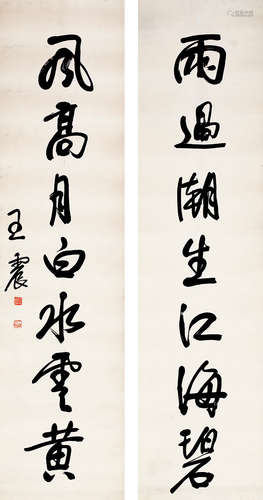 雨過潮生江海碧
風高月白水雲黃
王震